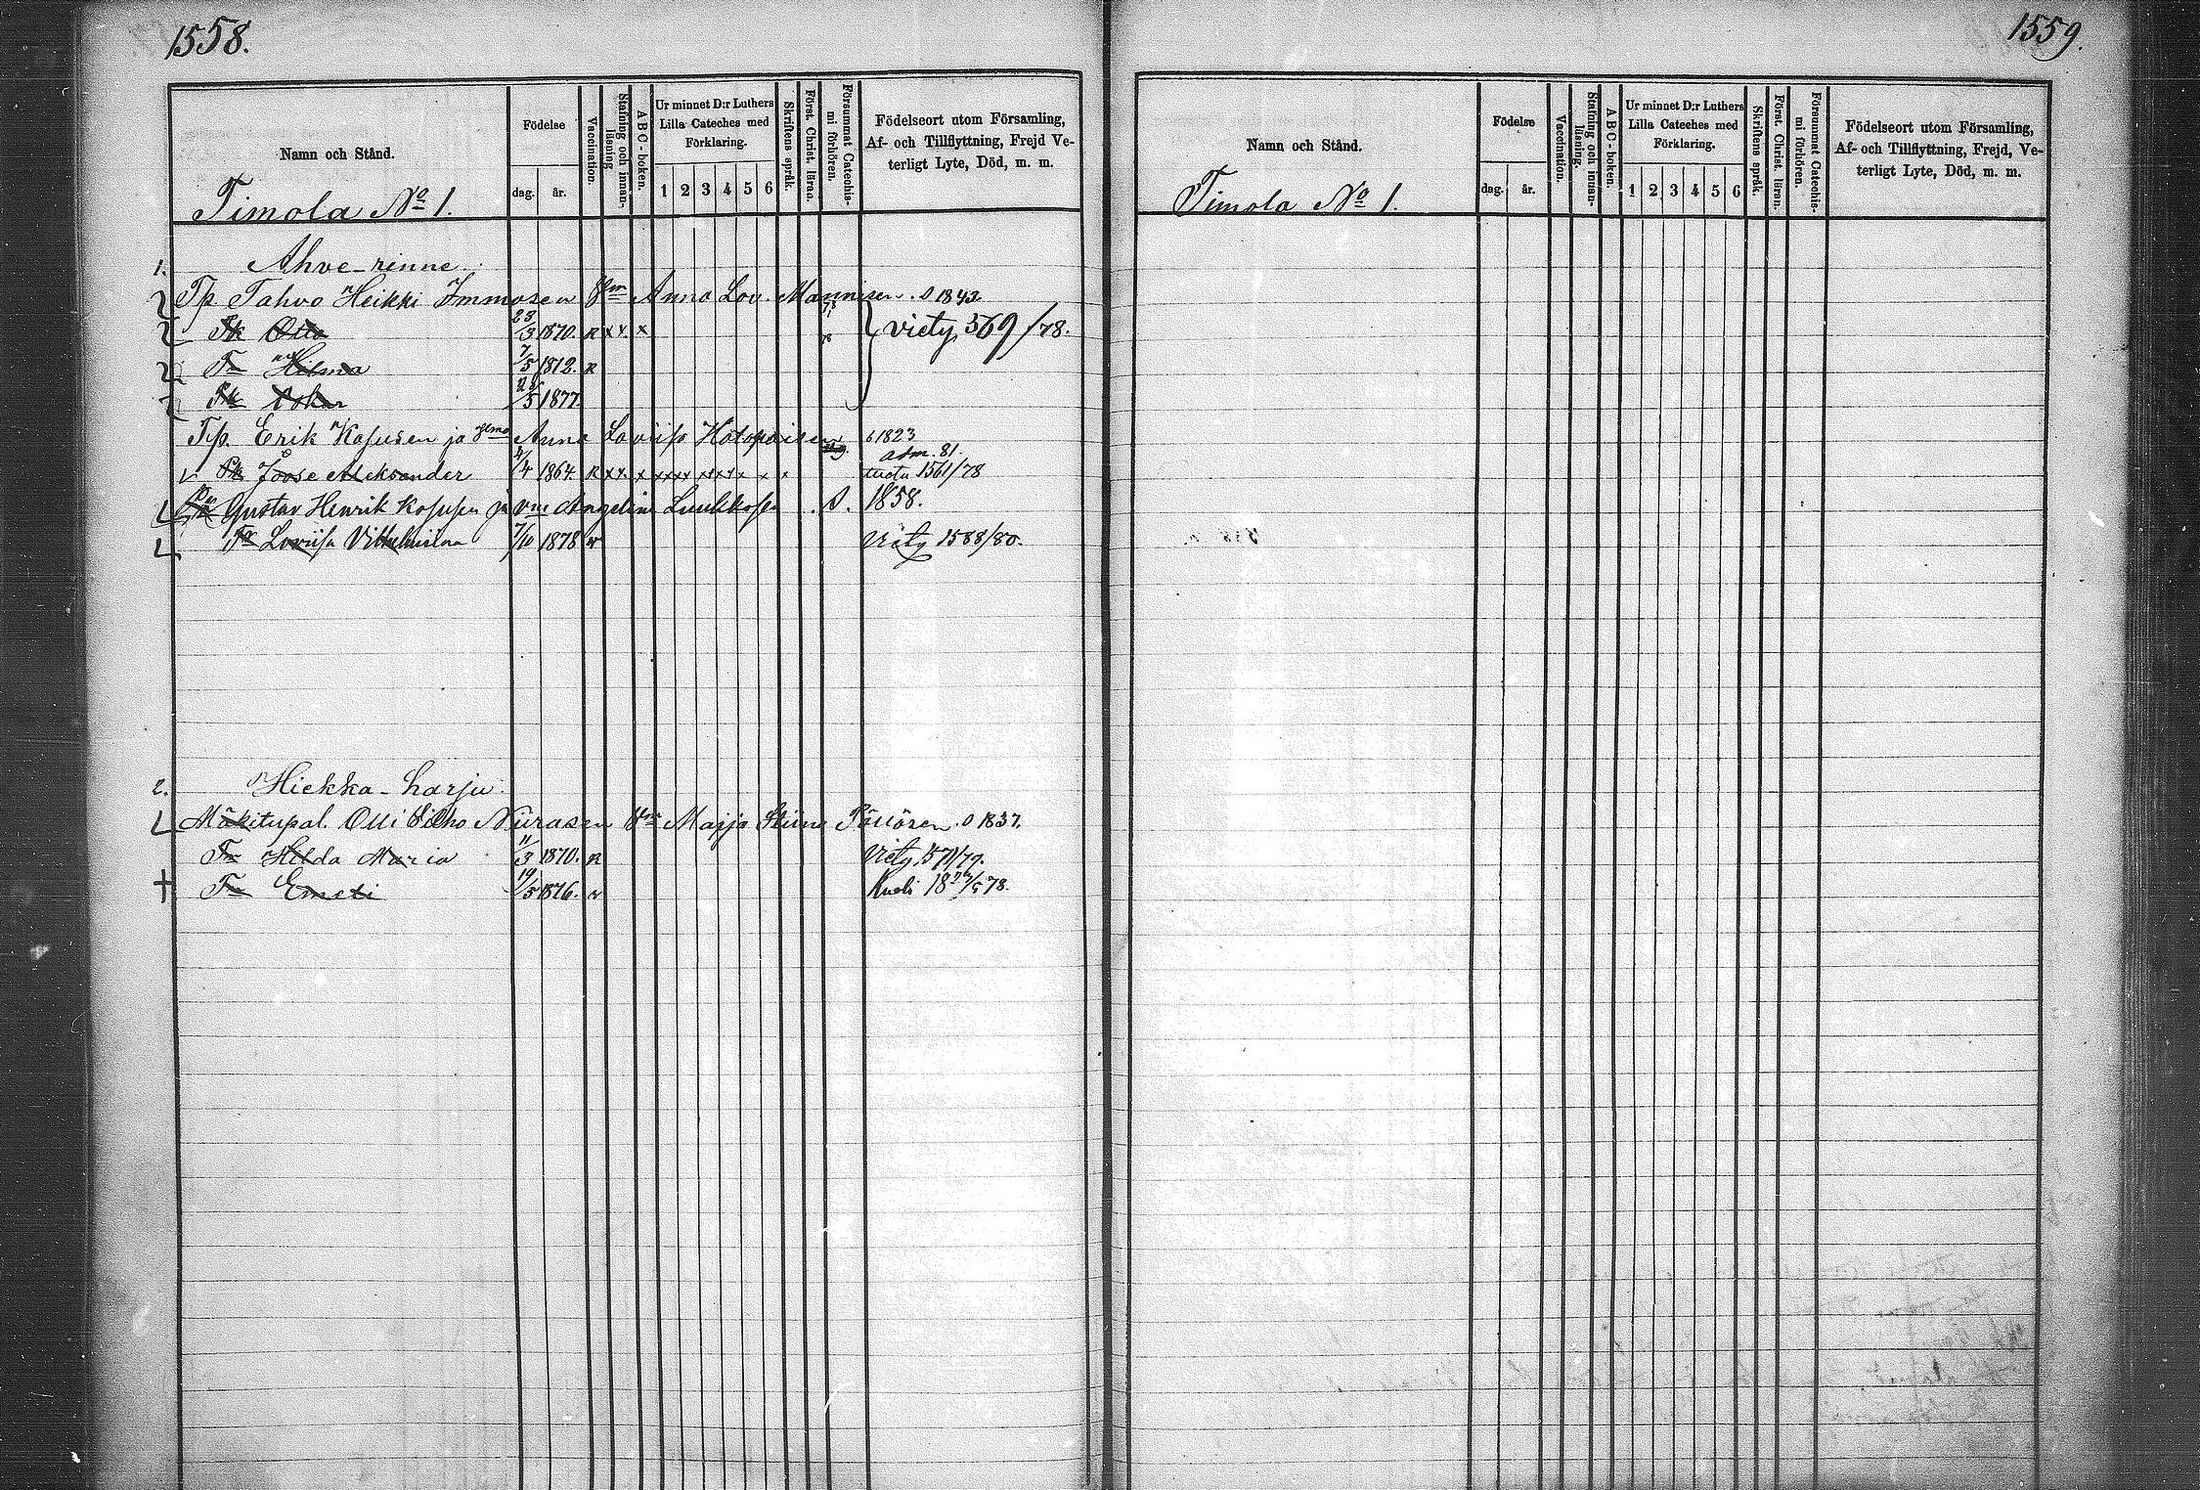 1558.
Namn och Stånd.
Födelse
dag.
år.
Vaccination.
Stafning och innan-läsning
ABC-boken.
Ur minnet D:r Luthers
Lilla Cateches med
Förklaring.
1 2 3 4 5 6
Skriftens språk.
Först. Christ. läran.
Försummat Catechis-mi förhören.
Födelseort utom Församling,
Af- och Tillflyttning, Frejd Ve-
terligt Lyte, Död, m. m.
Timola No 1.
1. Ahve-rinne.
Tp Tahvo Heikki Immosen Anna Lov. Mannisen. S 1842
Pk Otto 23/3 1870. R x x. x viety 569/78.
Tr Hilma 7/5 1872. R
Pk Oskar /5 1877.
Tp. Erik Kosusen ja Anna Loviisa 1823
Pk Joose Aleksander /4 1864. R x x. x xxxx xxxx x x x tuotu 1561/78
adm. 81.
Gustav Henrik Kosusen ja vm Angelin S. 1858.
Tr Loviisa Vilhelmiina 7/10 1878 v viety 1588/80.
2. Hiekka-harju.
Mäkitupal. Olli Nurasen Majja Stiina Pöllösen. S 1837.
Tr Hilda Maria 11/3 1870. R viety 1571/79.
† Tr Emeli 19/5 1876. v Kuoli 18 /5 78.
1559.
Namn och Stånd.
Födelse
dag.
år.
Vaccination.
Stafning och innan-läsning.
ABC-boken.
Ur minnet D:r Luthers
Lilla Cateches med
Förklaring.
1 2 3 4 5 6
Skriftens språk.
Först. Christ. läran.
Försummat Catechis-mi förhören.
Födelseort utom Församling,
Af- och Tillflyttning, Frejd, Ve-
terligt Lyte, Död, m. m.
Timola No 1.